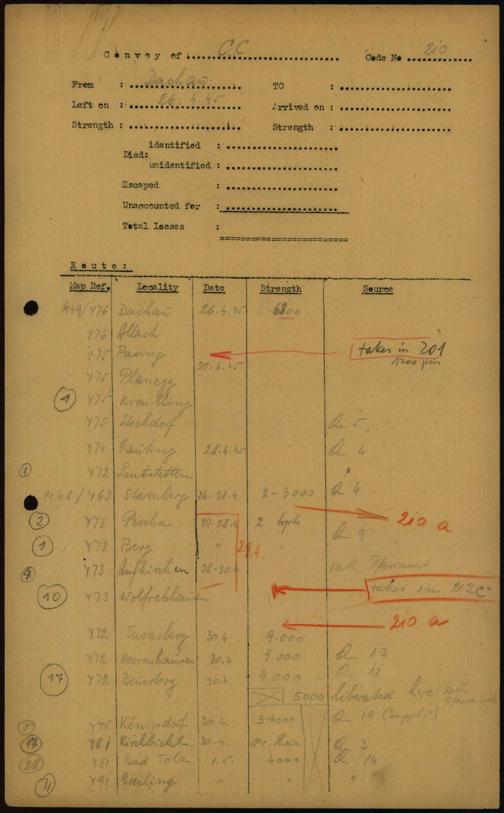 Convoy of C.C Code No 210
From : Dachau TO :
Left on : 26.4.45 Arrived on :
Strength : Strength :
identified :
Died:
unidentified :
Escaped :
Unaccounted for :
Total losses :
Route:
Map Ref. Locality Date Strength Source
M49/Y76 Dachau 26.4.45 6800
Y76 Allach
Y75 Pasing taken in 201
27.4.45 1200
Y75 Planegg
1 Y75 Krailling
Y75 Stockdorf Qu 5
Y74 Gauting 28.4.45 Qu 4
1 Y72 Leutstetten "
M48/Y63 Starnberg 26-28.4 2-3000 Qu 4
2 Y73 Percha 27-28.4 2 210 a
Qu 9
1 Y73 Berg " 29.4. "
4 Y73 Aufkirchen 28-30.4 kath. Pfarramt
10 Y73 Wolfratshausen taken in 212c
210 a
Y72 Eurasburg 30.4 9.000
Y72 Herrnhausen 30.4 9.000 Qu 13
17 Y72 Beuerberg 30.4 9.000 Qu 11
5000 liberated here (kath. Pfarramt)
Königsdorf 30.4. 3-4000 Qu 19
17 Y81 Kirchbichl 30.4. Qu 3
28 Y81 Bad Tölz 1.5. 4000 Qu 14
4 Y91 Greiling " " " "